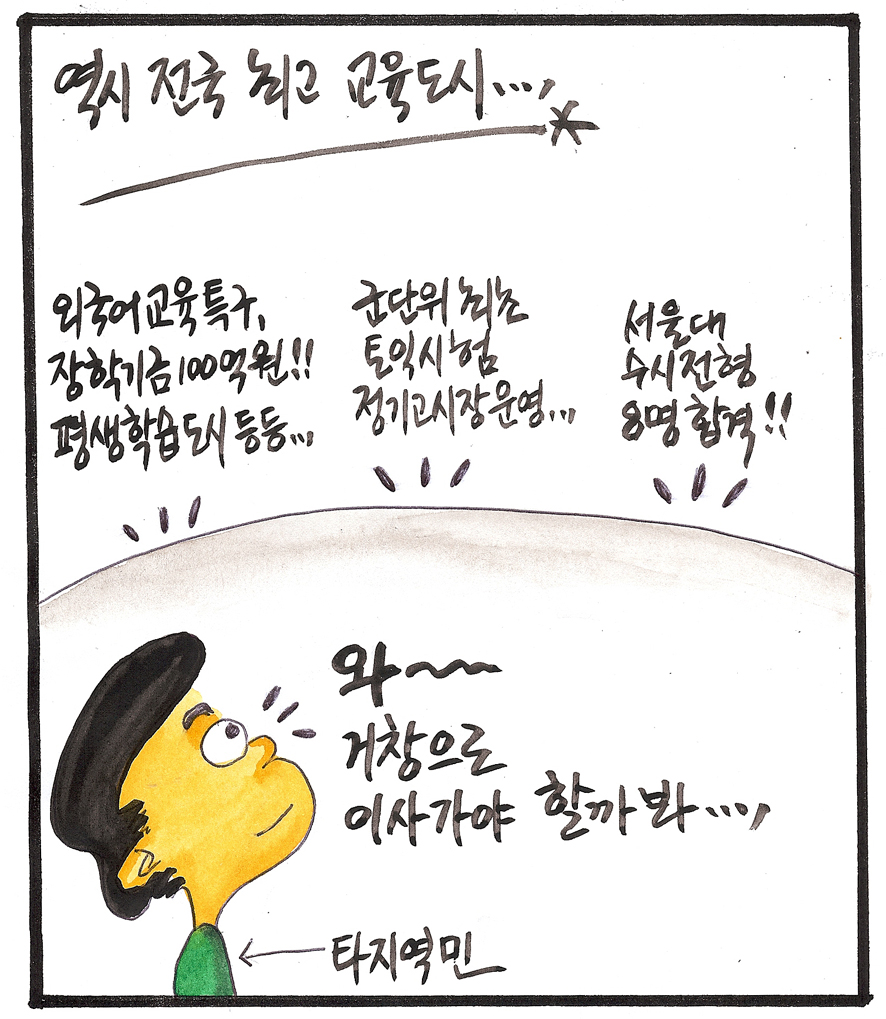 역시 전국 최고 교육도시...,
외국어교육특구,
장학기금100억원!!
평생학습도시 등등...,
군단위 최초
토익시험
정기고시장운영...,
서울대
수시전형
8명 합격!!
와~~
거창으로
이사가야 할까봐...,
타지역민